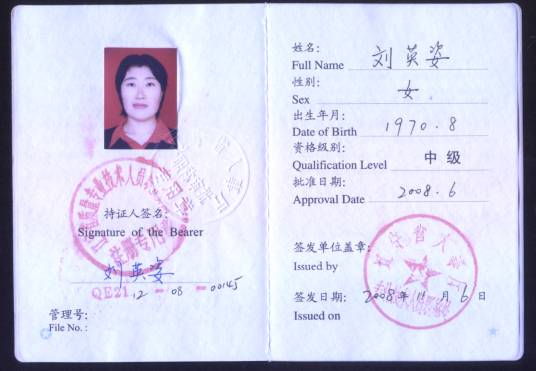 持证人签名:
Signature of the Bearer
刘英姿
QE21 12 -- 08 -- 00145
管理号:
File No.:
姓名:
Full Name 刘英姿
性别:
Sex 女
出生年月:
Date of Birth 1970.8
资格级别:
Qualification Level 中级
批准日期:
Approval Date 2008.6
签发单位盖章:
Issued by
签发日期: 2008年11月6日
Issued on